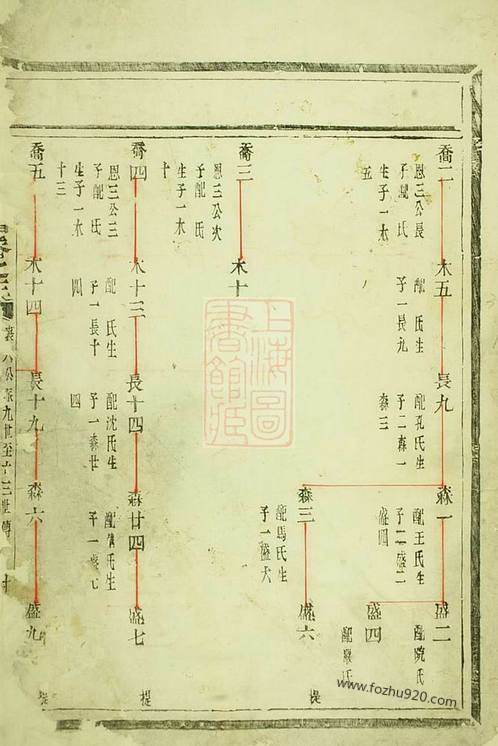 喬二
恩三公長
子配　氏
生子一木
五
木五
配　氏生
子一長九
長九
配孔氏生
子二森一
森三
森一
配王氏生
子二盛二
盛四
盛二
配阮氏
盛四
森三
配馬氏生
子一盛六
盛六
喬三
恩三公次
子配　氏
生子一木
十
木十
喬四
恩三公三
子配　氏
生子一木
十三
木十三
配　氏生
子一長十
四
長十四
配沈氏生
子一森廿
四
森廿四
子一盛七
盛七
喬五
木十四
長十九
森六
盛九
提
提
提
上海圖
書館藏
www.fozhu920.com